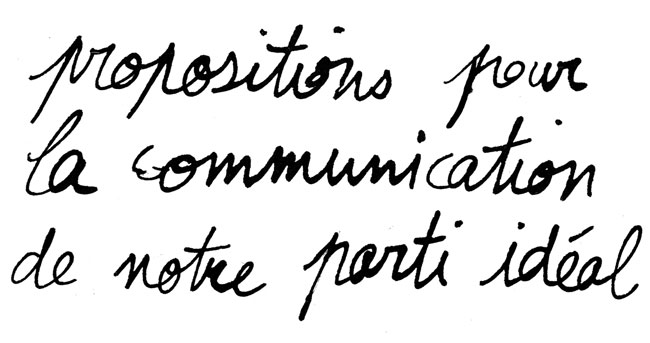 propositions pour
la communication
de notre parti idéal